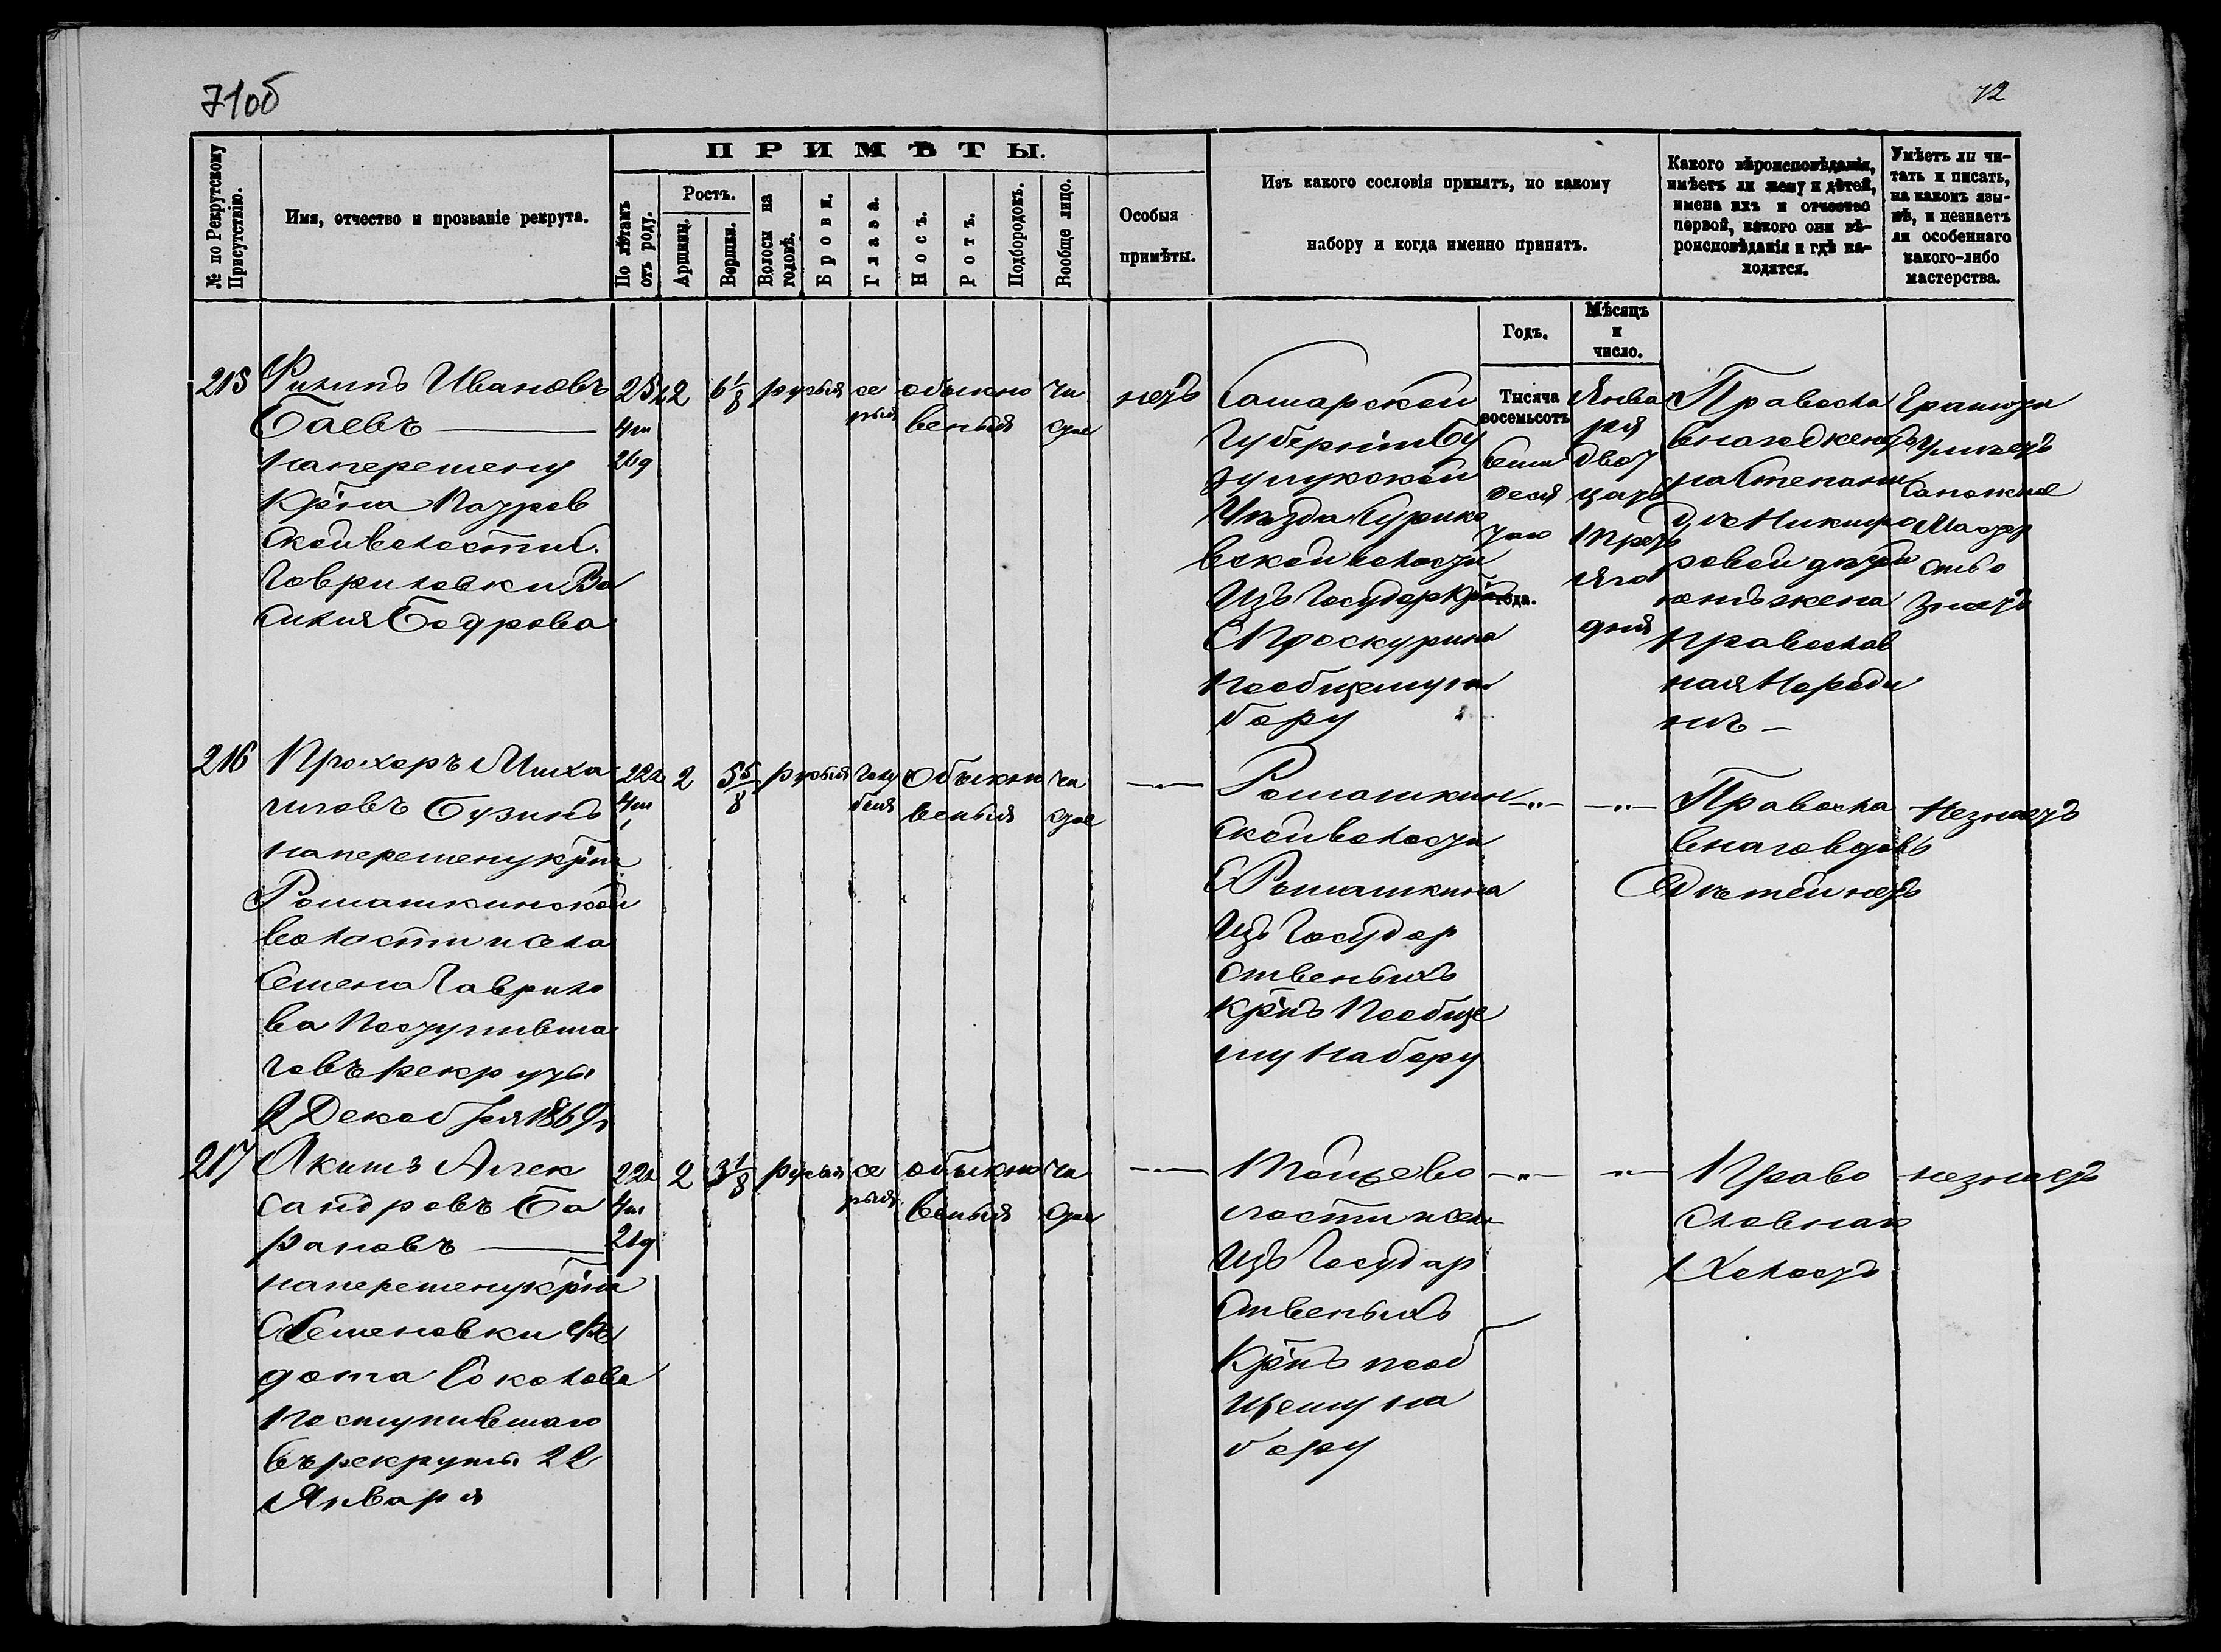 71об
72
№ по Рекрутскому Присутствію.
Имя, отчество и прозваніе рекрута.
ПРИМѢТЫ.
По лѣтамъ отъ роду.
Ростъ.
Аршинъ.
Вершки.
Волосы на головѣ.
Брови.
Глаза.
Носъ.
Ротъ.
Подбородокъ.
Вообще лицо.
Особыя
примѣты.
Изъ какого сословія принятъ, по какому
набору и когда именно принятъ.
Какого вѣроисповѣданія,
имѣетъ ли жену и дѣтей,
имена ихъ и отчество
первой, какого они вѣ-
роисповѣданія и гдѣ на-
ходятся.
Умѣетъ ли чи-
тать и писать,
на какомъ язы-
кѣ, и незнаетъ
ли особеннаго
какого-либо
мастерства.
Годъ.
Мѣсяцъ
и
число.
215
Филипъ Ивановъ
Баевъ —
наперемену
кр̃на Патров
ской волости С.
Гавриловки Ва
силия Бодрова
25л
4м
26д
2
6 1/8
русыя
се
рыя
обыкно
веныя
чи
стое
нетъ
Самарской
Губерніи Бу
зулукской
Уѣзда
вской волости
Изъ Государ Кр̃нъ
С Проскурина
Пообщему на
бору
Тысяча
восемьсотъ
семи
деся
того
года.
Янва
ря
двад
цать
трет
яго
дня
Правосла
внагоженатъ
на Степани
дѣ Никифо
ровой дѣтей
нѣтъ жена
православ
ная Народи
нѣ —
Грамоти
Умѣетъ
Сапожное
Мастер
ство
знаетъ
216
Прохоръ Миха
иловъ Бузинъ
наперемену кр̃на
Ромашкинской
волости и села
Семена Гаврило
ва Поступивша
говъ рекруты
2 Декабря 1869г
22л
4м
1
2
5 5/8
русыя
голу
быя
Обыкно
веныя
чи
стое
—"—
Ромашкин
ской волости
С Ромашкина
Изъ Государ
ственыхъ
Кр̃нъ Пообще
му Набору
—"—
—"—
Правосла
внаговдовъ
Дѣтей нетъ
Незнаетъ
217
Акимъ Алек
сандровъ Ба
рановъ —
наперемену кр̃на
С Семеновки Фе
дота Соколова
Поступившаго
въ рекруты 22
Января
22л
4м
21д
2
3 1/8
русыя
се
рыя
обыкно
веныя
чи
стое
—"—
Тойжево
лости и села
Изъ Государ
ственыхъ
Кр̃нъ пооб
щему на
бору
—"—
—"—
Право
славнаго
Холостъ
незнаетъ